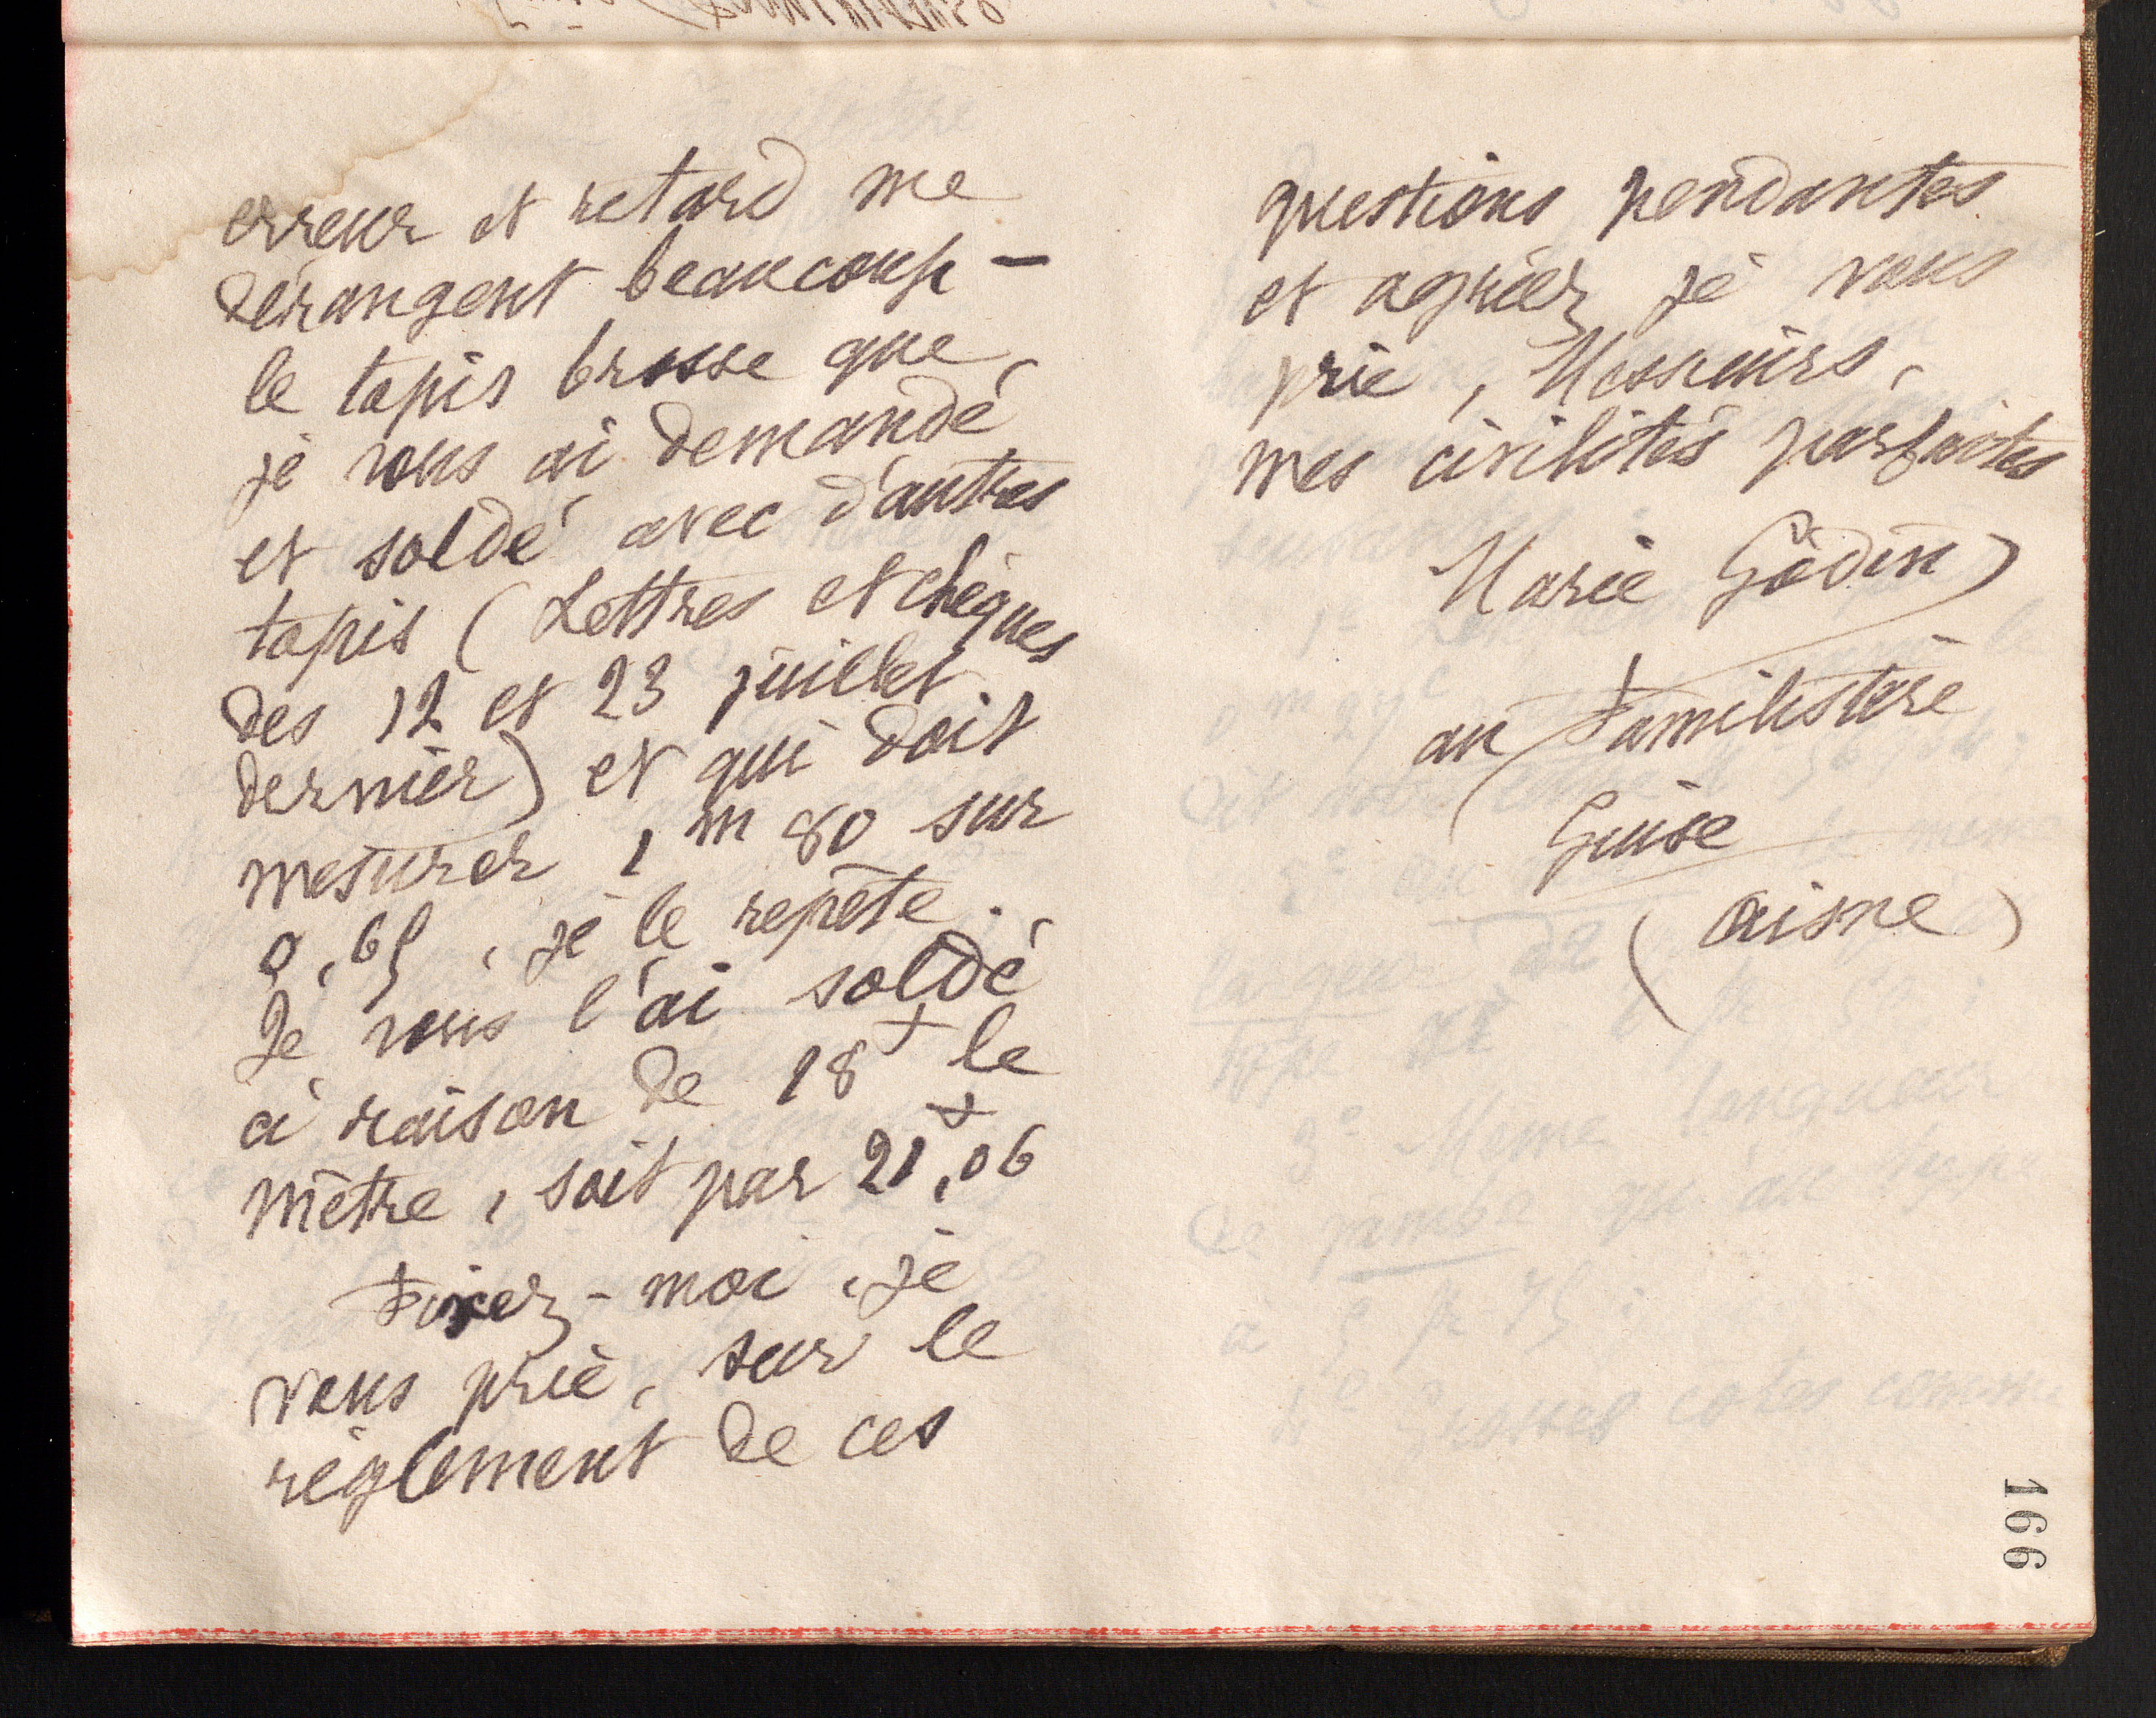 erreur et retard me
dérangent beaucoup –
le tapis brosse que
je vous ai demandé
et soldé avec d'autres
tapis (Lettres et chèques
des 12 et 23 juillet
dernier) et qui doit
mesurer 1 m 80 sur
0,65, je le repète.
Je vous l'ai soldé
à raison de 18 f le
mètre, soit par 21 f,06
Fixez-moi, je
vous prie, sur le
règlement de ces
questions pendantes
et agréez, je vous
prie, Messieurs,
mes civilités parfaites
Marie Godin
au Familistère
Guise
(Aisne)
166